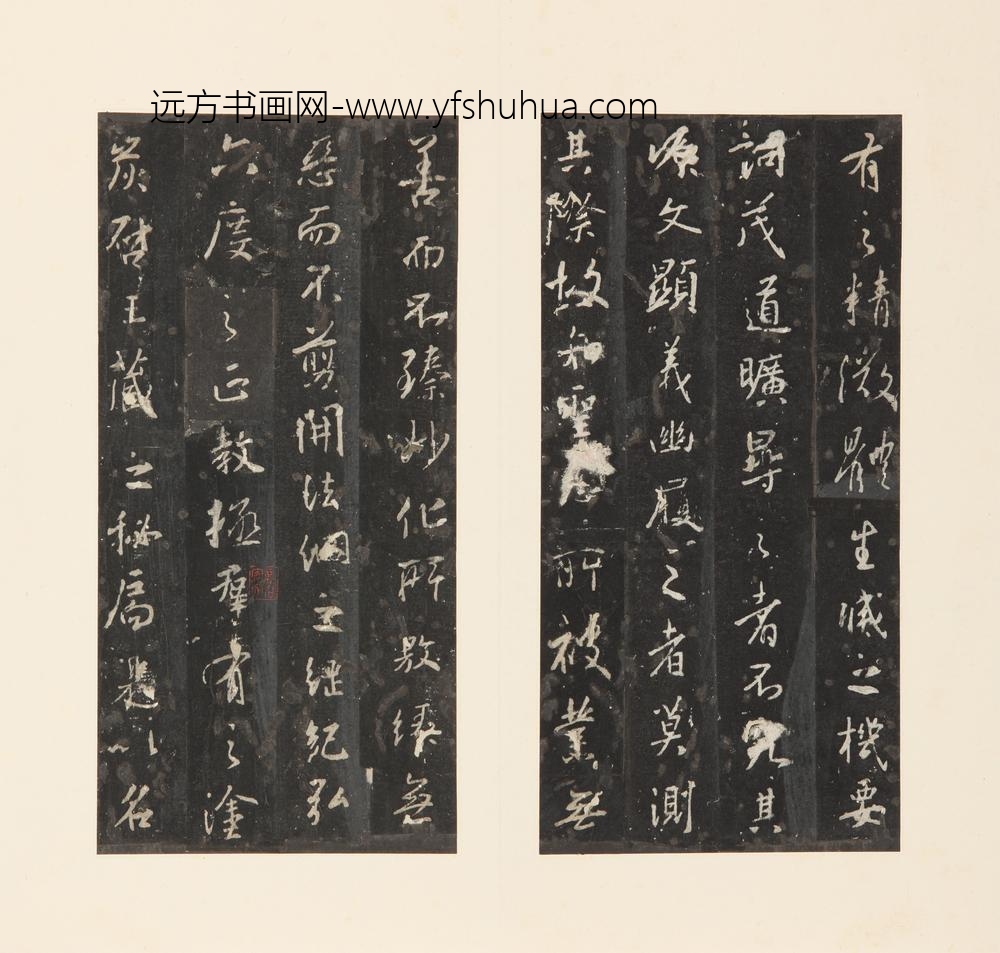 远方书画网-www.yfshuhua.com
有之精微體生滅之機要
詞茂道曠尋之者不究其
源文顯義幽履之者莫測
其際故知聖慈所被業無
善而不臻妙化所敷緣無
惡而不翦開法網之綱紀弘
六度之正教拯羣有之塗
炭啓三藏之秘扃是以名